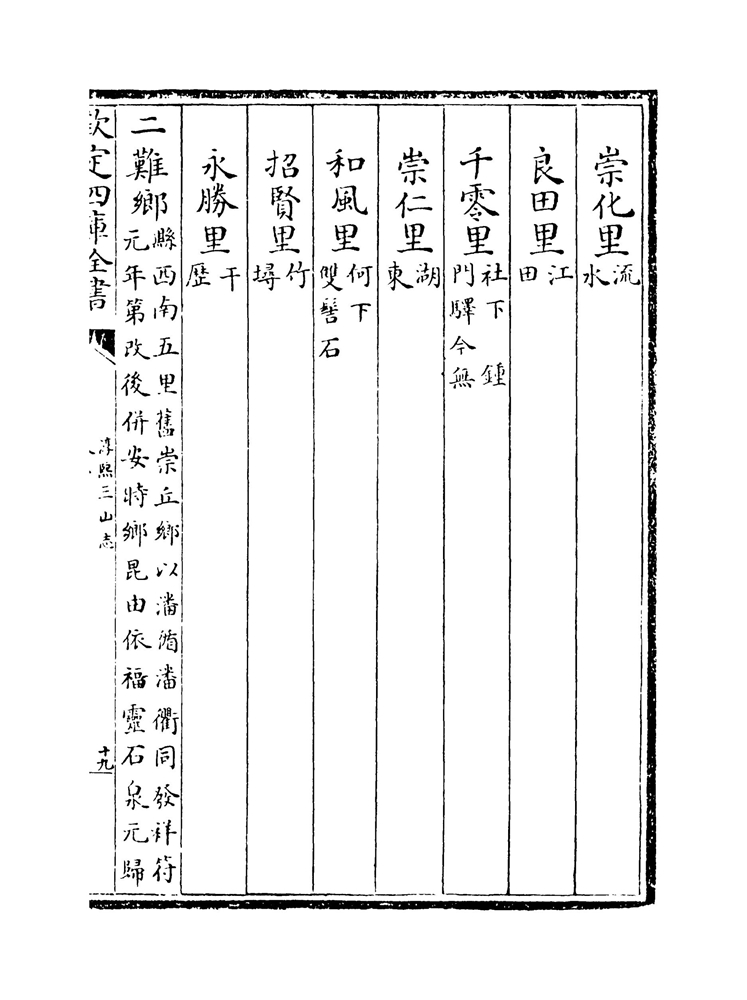 崇化里流水
良田里江田
千零里社下 鍾門驛今無
崇仁里湖東
和風里何下雙髻石
招賢里竹墿
永勝里干歷
二難鄉縣西南五里舊崇丘鄉以潘循潘衢同發祥符元年第改後併安時鄉昆由依福靈石泉元歸
欽定四庫全書
淳熙三山志
十九